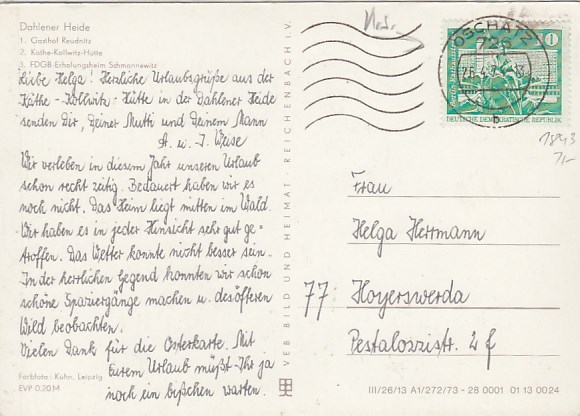 Dahlener Heide
1. Gasthof Reudnitz
2. Käthe-Kollwitz-Hütte
3. FDGB-Erholungsheim Schmannewitz
Liebe Helga! Herzliche Urlaubsgrüße aus der
Käthe-Kollwitz-Hütte in der Dahlener Heide
senden Dir, Deiner Mutti und Deinem Mann
A. u. I. Weise
Wir verleben in diesem Jahr unseren Urlaub
schon recht zeitig. Bedauert haben wir es
noch nicht. Das Heim liegt mitten im Wald.
Wir haben es in jeder Hinsicht sehr gut ge=
troffen. Das Wetter konnte nicht besser sein.
In der herrlichen Gegend konnten wir schon
schöne Spaziergänge machen u. des öfteren
Wild beobachten.
Vielen Dank für die Osterkarte. Mit
Eurem Urlaub müßt Ihr ja
noch ein bißchen warten.
Farbfoto: Kühn, Leipzig
EVP 0,20 M
VEB BILD UND HEIMAT REICHENBACH i. V.
OSCHATZ
b
1
DEUTSCHE DEMOKRATISCHE REPUBLIK
1843
Frau
Helga Herrmann
77 Hoyerswerda
Pestalozzistr. 2 f
III/26/13 A1/272/73 - 28 0001 01 13 0024